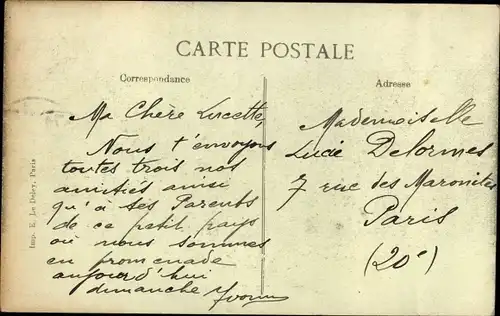 CARTE POSTALE
Correspondance
Adresse
Ma Chère Lucette,
Nous t'envoyons
toutes trois nos
amitiés ainsi
qu'à ses Parents
de ce petit pays
où nous sommes
en promenade
aujourd'hui
dimanche Yvonne
Mademoiselle
Lucie Delormes
7 rue des Maronites
Paris
(20e)
Imp. E. Le Deley, Paris